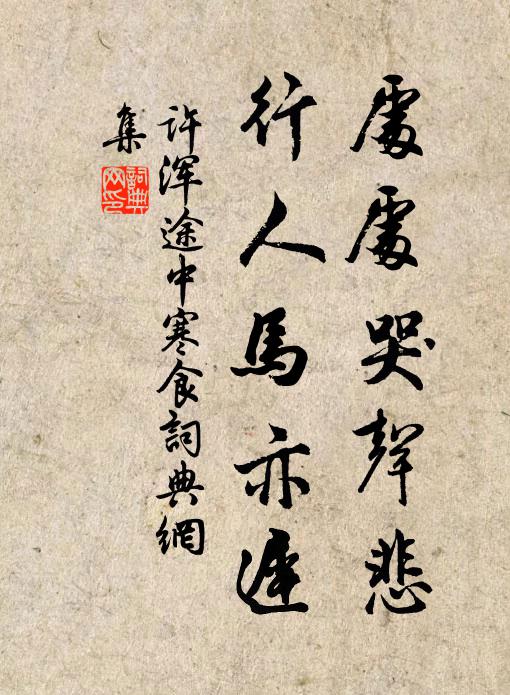 處處哭聲悲
行人馬亦遲
许浑途中寒食詞典網
集
詞典網印